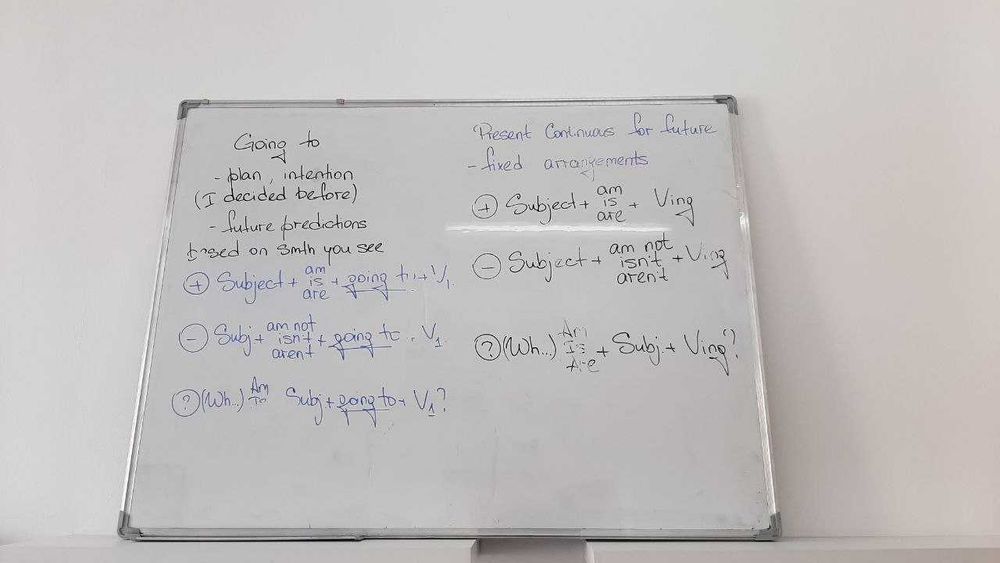 Going to
- plan, intention
(I decided before)
- future predictions
based on smth you see
+ Subject + am is are + going to + V1.
- Subj + am not isn't aren't + going to .. V1.
? (Wh...) Am Subj + going to + V1?
Present Continuous for future
- fixed arrangements
+ Subject + am is are + Ving
- Subject + am not isn't aren't + Ving
? (Wh...) Am Is Are + Subj + Ving?